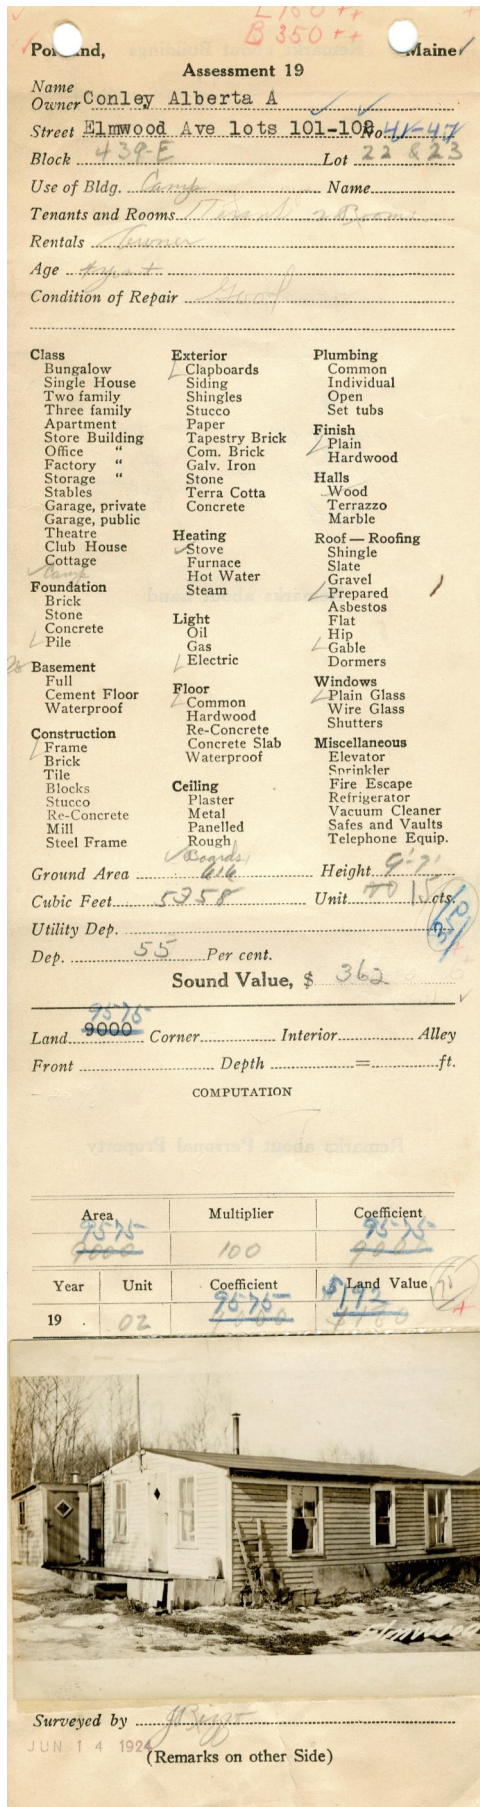 L 150 ++
B 350 ++
Portland, Maine
Assessment 19
Name
Owner Conley Alberta A
Street Elmwood Ave lots 101-102 No. 41-47
Block 439-E Lot 22 & 23
Use of Bldg. Camp Name
Tenants and Rooms 1 Tenant 2 Rooms
Rentals Owner
Age
Condition of Repair Good
Class
Bungalow
Single House
Two family
Three family
Apartment
Store Building
Office "
Factory "
Storage "
Stables
Garage, private
Garage, public
Theatre
Club House
Cottage
Camp
Foundation
Brick
Stone
Concrete
Pile
Basement
Full
Cement Floor
Waterproof
Construction
Frame
Brick
Tile
Blocks
Stucco
Re-Concrete
Mill
Steel Frame
Exterior
Clapboards
Siding
Shingles
Stucco
Paper
Tapestry Brick
Com. Brick
Galv. Iron
Stone
Terra Cotta
Concrete
Heating
Stove
Furnace
Hot Water
Steam
Light
Oil
Gas
Electric
Floor
Common
Hardwood
Re-Concrete
Concrete Slab
Waterproof
Ceiling
Plaster
Metal
Panelled
Rough
Boards
Plumbing
Common
Individual
Open
Set tubs
Finish
Plain
Hardwood
Halls
Wood
Terrazzo
Marble
Roof — Roofing
Shingle
Slate
Gravel
Prepared
Asbestos
Flat
Hip
Gable
Dormers
Windows
Plain Glass
Wire Glass
Shutters
Miscellaneous
Elevator
Sprinkler
Fire Escape
Refrigerator
Vacuum Cleaner
Safes and Vaults
Telephone Equip.
Ground Area 616 Height
Cubic Feet 5358 Unit 15 cts.
Utility Dep. 350
Dep. 55 Per cent.
Sound Value, $ 362
9575
Land 9000 Corner Interior Alley
Front Depth = ft.
COMPUTATION
Area Multiplier Coefficient
9575 9575
9000 100 9000
Year Unit Coefficient Land Value
9575 $192
19 02 9000 $180
Elmwood
Surveyed by
JUN 14 1924
(Remarks on other Side)